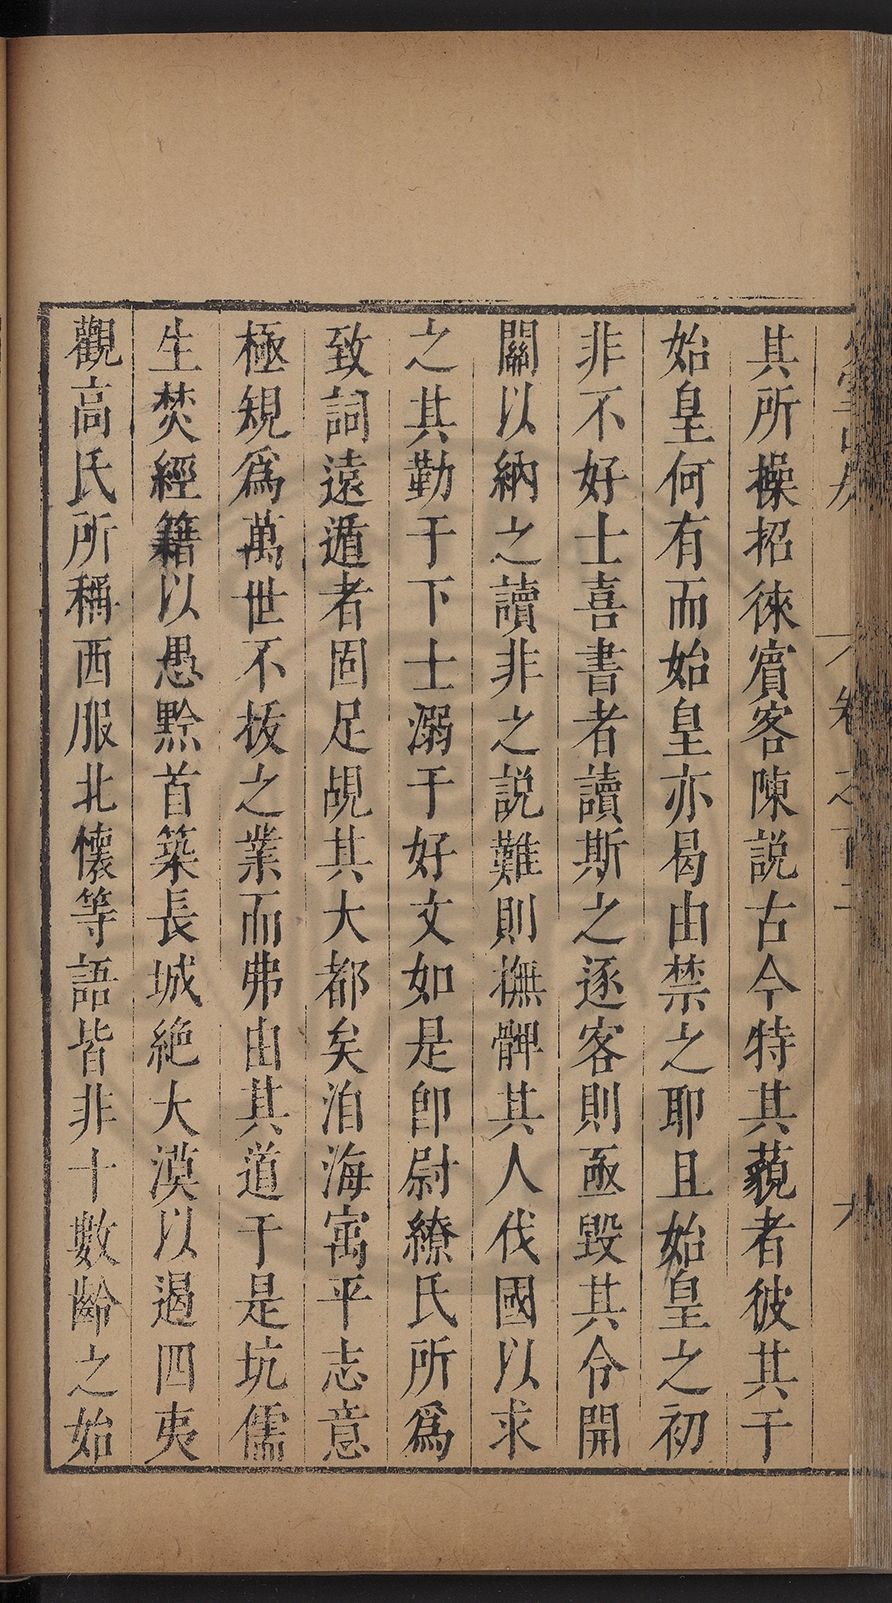 卷之百二
九
其所操招徠賓客陳説古今特其藐者彼其于
始皇何有而始皇亦曷由禁之耶且始皇之初
非不好士喜書者讀斯之逐客則亟毀其令開
關以納之讀非之説難則撫髀其人伐國以求
之其勤于下士溺于好文如是卽尉繚氏所爲
致詞遠遁者固足覘其大都矣洎海寓平志意
極規爲萬世不拔之業而弗由其道于是坑儒
生焚經籍以愚黔首築長城絶大漠以遏四夷
觀高氏所稱西服北懷等語皆非十數齡之始